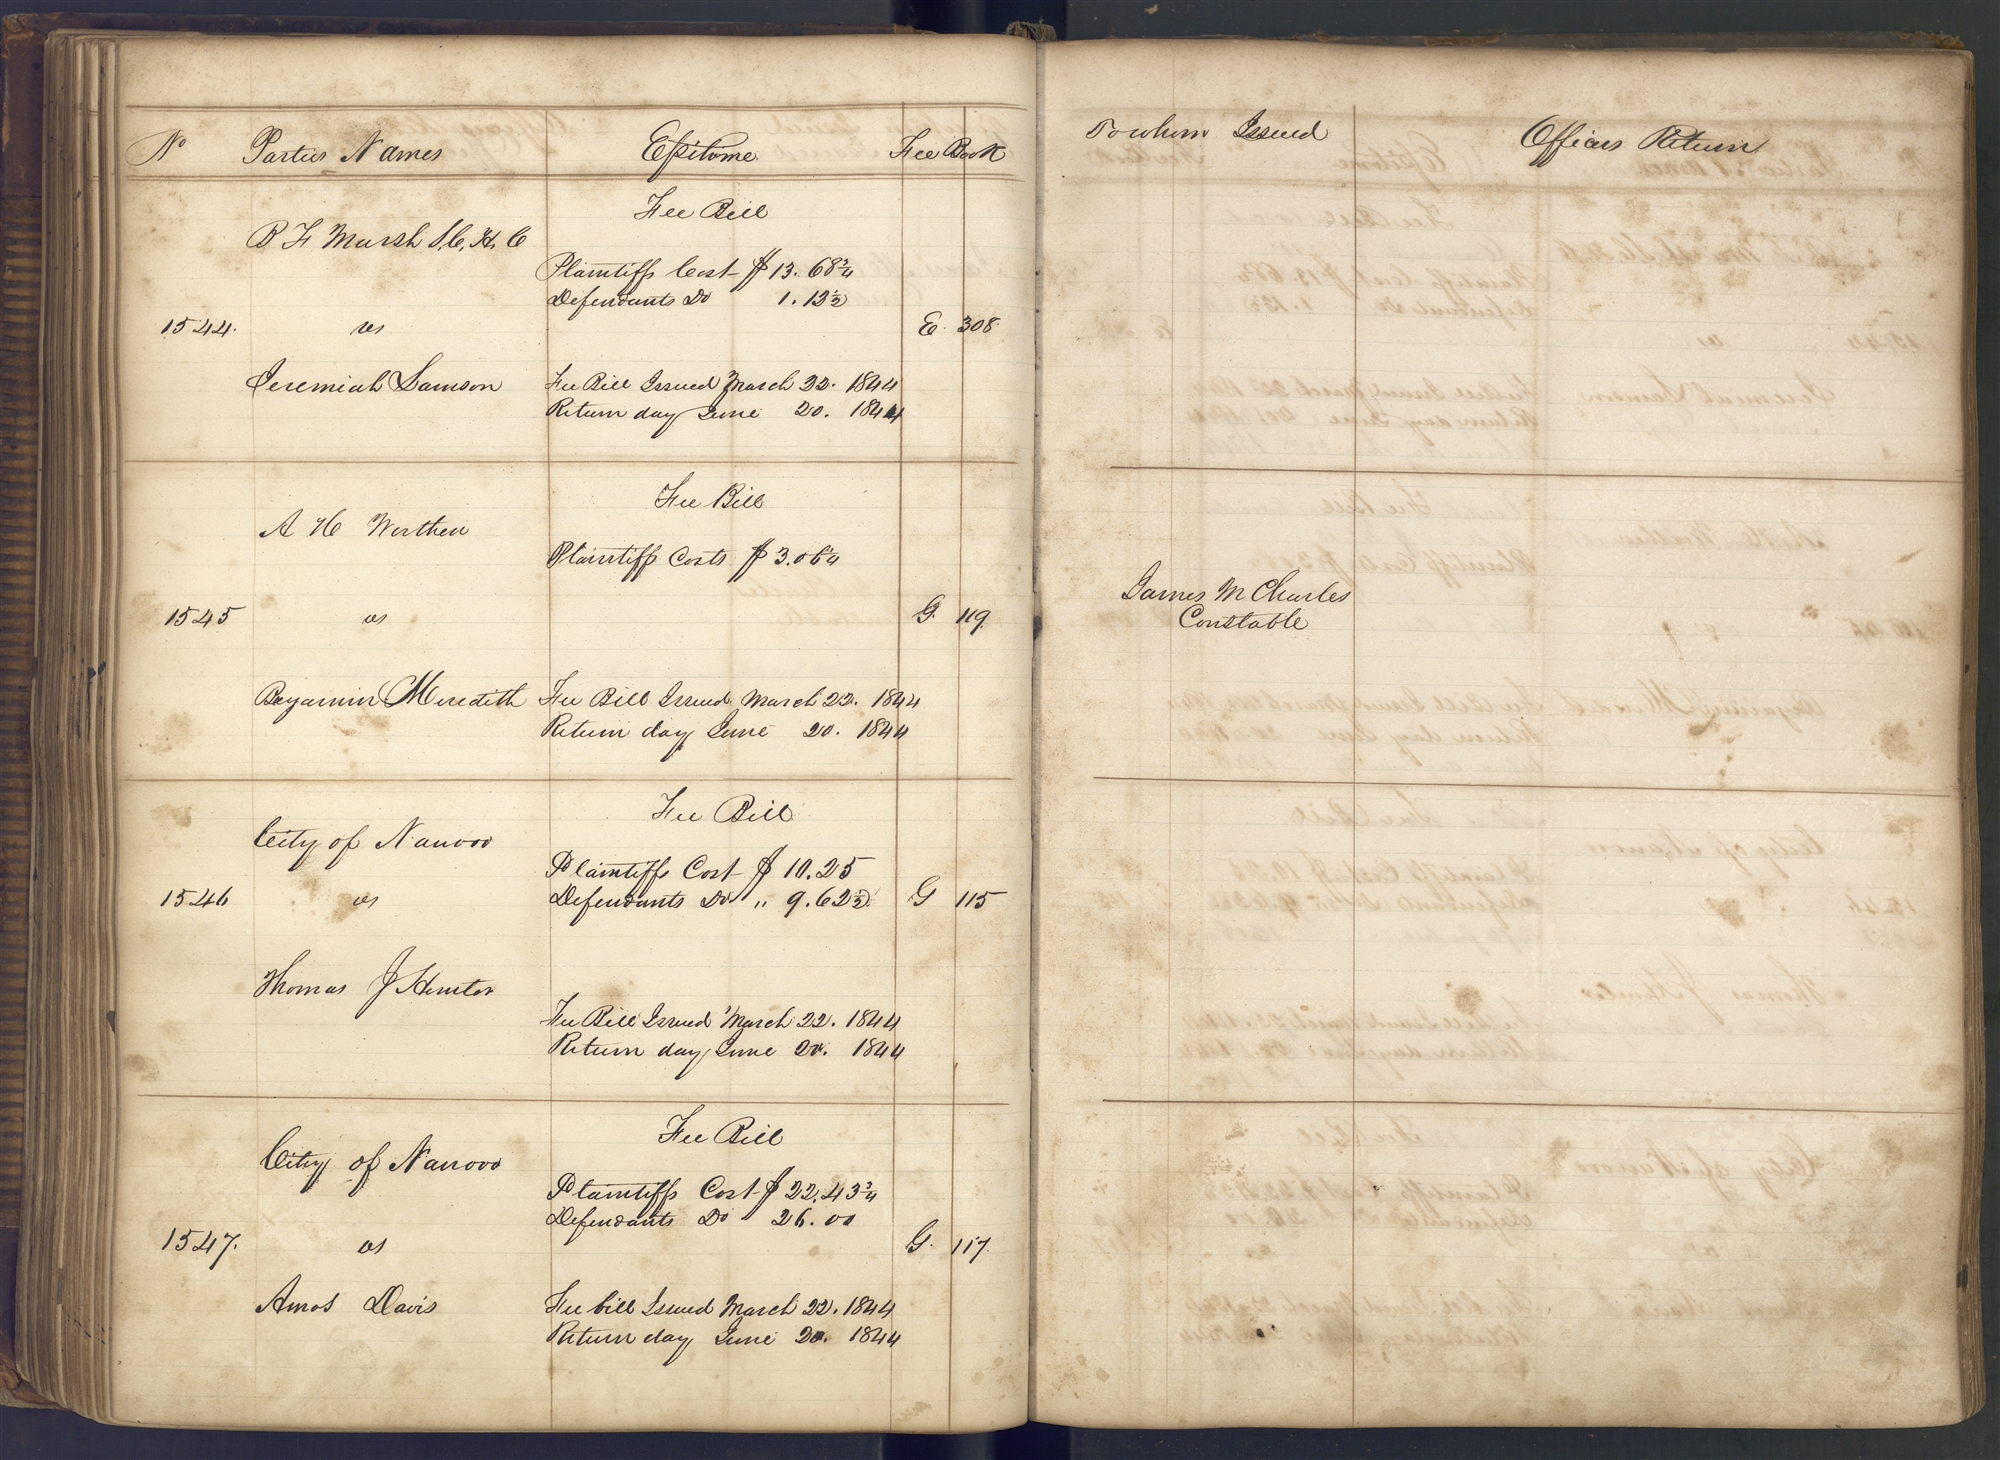 No Parties Names Epitome Fee Book
Fee Bill
B F Marsh S.C. H. C
Plaintiffs Cost $ 13. 68 3/4
Defendants Do 1. 13 1/2
1544. vs E. 308.
Jeremiah Lamson Fee Bill Issued March 22. 1844
Return day June 20. 1844
Fee Bill
A H Worthen
Plaintiff Costs $ 3.06 1/4
1545 vs G. 119.
Benjamin Meredith Fee Bill Issued March 22. 1844
Return day June 20. 1844
Fee Bill
City of Nauvoo
Plaintiffs Cost $ 10.25
Defendants Do " 9.62 1/2
1546 vs G 115
Thomas J Hunter
Fee Bill Issued March 22. 1844
Return day June 20. 1844
Fee Bill
City of Nauvoo
Plaintiffs Cost $ 22.43 3/4
Defendants Do 26.00
1547. vs G. 117.
Amos Davis Fee bill Issued March 22. 1844
Return day June 20. 1844
To whom Issued Officers Return
James M Charles
Constable